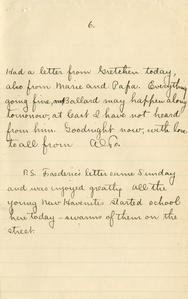 6.
Had a letter from Gretchen today,
also from Marie and Papa. Everything
going fine, Ballard may happen along
tomorrow, at least I have not heard
from him. Goodnight now, with love
to all from
P.S. Frederic's letter came Sunday
and was enjoyed greatly. All the
young New Havenites started school
here today - swarms of them on the
street.